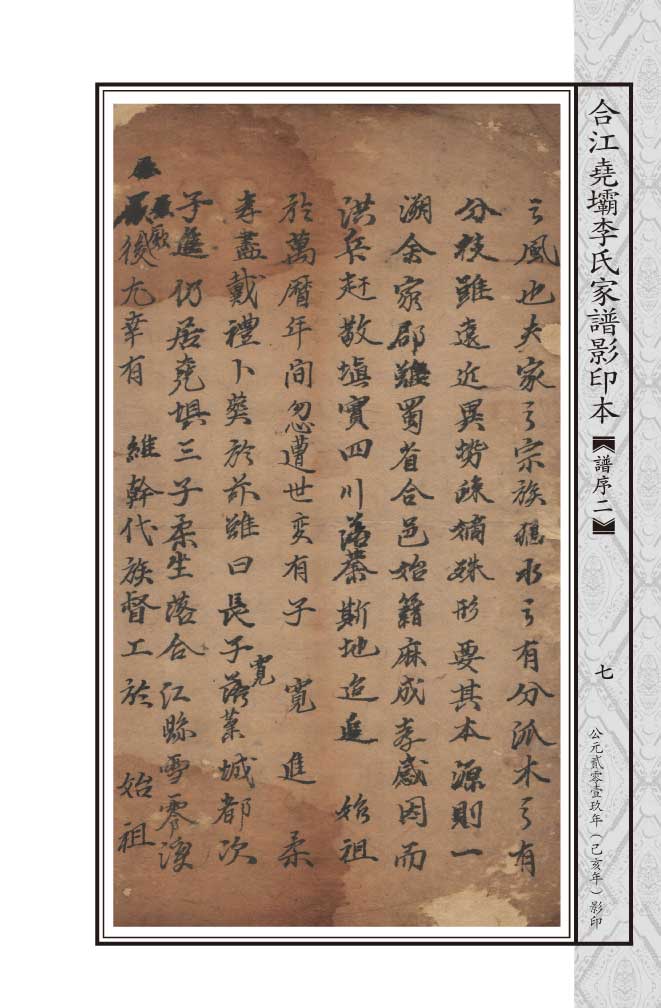 合江堯壩李氏家譜影印本
【譜序二】
七
公元貳零壹玖年（己亥年）影印
之風也夫家之宗族猶水之有分派木之有
分枝雖遠近異勢疎嫡殊形要其本源則一
溯余家郡蜀省合邑始籍麻成孝感因而
洪兵赶散填實四川落業斯地迨 始祖
於萬曆年間忽遭世变有子 寬 進 柔
孝盡戴禮卜葵於茆雖曰長子寬落業城都次
子進仍居堯垻三子柔坐落合江縣雪零渡
厥後尤幸有 維幹代族督工於 始祖